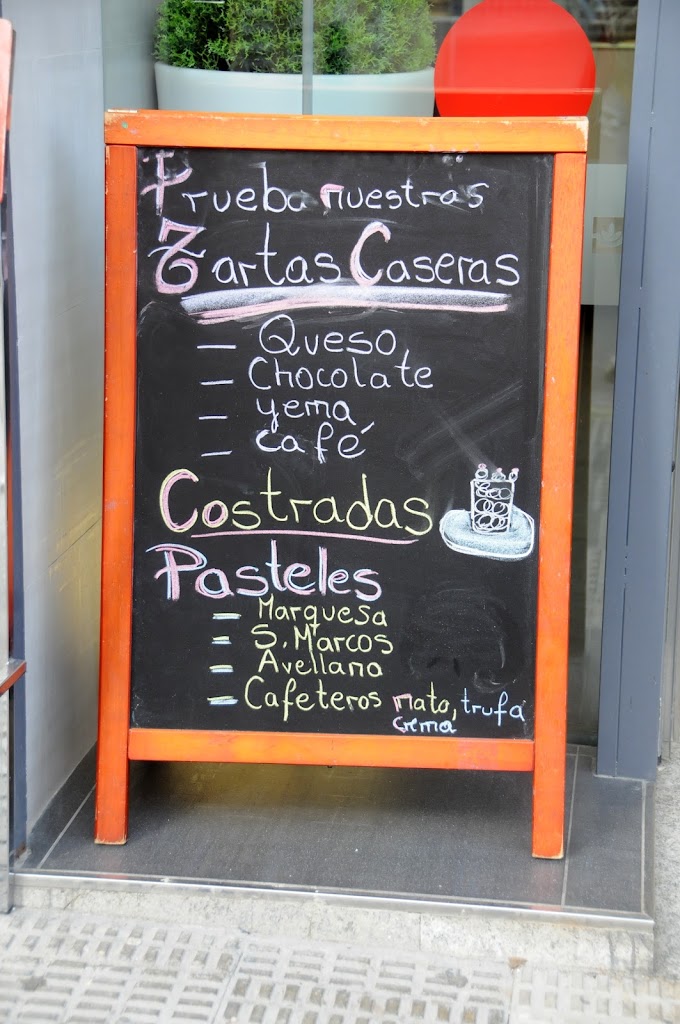 Prueba nuestras
Tartas Caseras
— Queso
— Chocolate
— yema
— café
Costradas
Pasteles
— Marquesa
— S. Marcos
— Avellana
— Cafeteros nata, trufa
crema